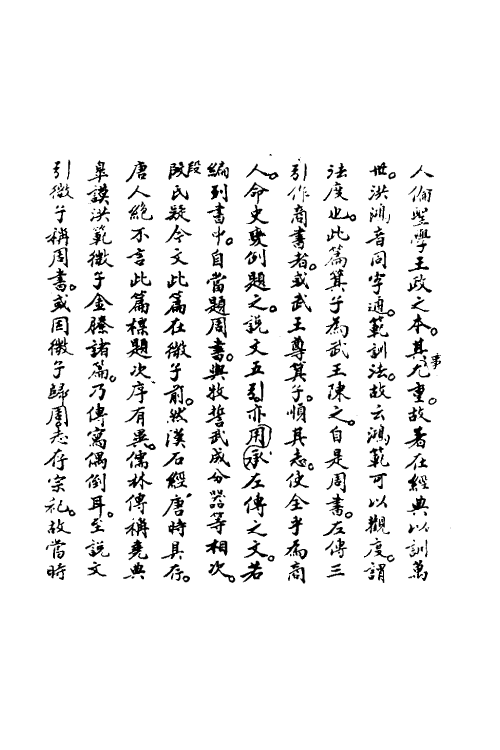 人倫聖學王政之本。其事尤重。故著在經典以訓萬
世。洪鴻音同字通。範訓法。故云鴻範可以觀度。謂
法度也。此篇箕子為武王陳之。自是周書。左傳三
引作商書者。或武王尊箕子。順其志。使全乎為商
人。命史變例題之。説文五引亦用承左傳之文。若
編列書中。自當題周書。與牧誓武成分器等相次。
段段氏疑今文此篇在微子前。然漢石經唐時具存。
唐人絶不言此篇標題次序有異。儒林傳稱堯典
皋謨洪範微子金縢諸篇。乃傳寫偶倒耳。至説文
引微子稱周書。或因微子歸周志存宗礼。故當時